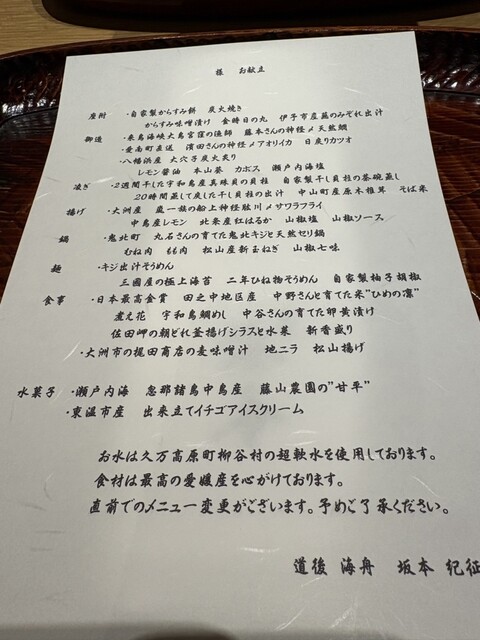 様 お献立
座附 ・自家製からすみ餅 炭火焼き
からすみ味噌漬け 金時日の丸 伊予市産蕪のみぞれ出汁
御造 ・来島海峡大島宮窪の漁師 藤本さんの神経〆天然鯛
・愛南町直送 濱田さんの神経〆アオリイカ 日戻りカツオ
・八幡浜産 大穴子炭火炙り
レモン醤油 本山葵 カボス 瀬戸内海塩
凌ぎ ・2週間干した宇和島産真珠貝の貝柱 自家製干し貝柱の茶碗蒸し
20時間蒸して戻した干し貝柱の出汁 中山町産原木椎茸 そば米
揚げ ・大洲産 嵐一族の船上神経脱川〆サワラフライ
中島産レモン 北条産紅はるか 山椒塩 山椒ソース
鍋 ・鬼北町 丸石さんの育てた鬼北キジと天然セリ鍋
むね肉 もも肉 松山産新玉ねぎ 山椒七味
麺 ・キジ出汁そうめん
三國屋の極上海苔 二年ひね物そうめん 自家製柚子胡椒
食事 ・日本最高金賞 田之中地区産 中野さんと育てた米"ひめの凛"
煮え花 宇和島鯛めし 中谷さんの育てた卵黄漬け
佐田岬の朝どれ釜揚げシラスと水菜 新香盛り
・大洲市の梶田商店の麦味噌汁 地ニラ 松山揚げ
水菓子 ・瀬戸内海 忽那諸島中島産 藤山農園の"甘平"
・東温市産 出来立てイチゴアイスクリーム
お水は久万高原町柳谷村の超軟水を使用しております。
食材は最高の愛媛産を心がけております。
直前でのメニュー変更がございます。予めご了承ください。
道後 海舟 坂本 紀征